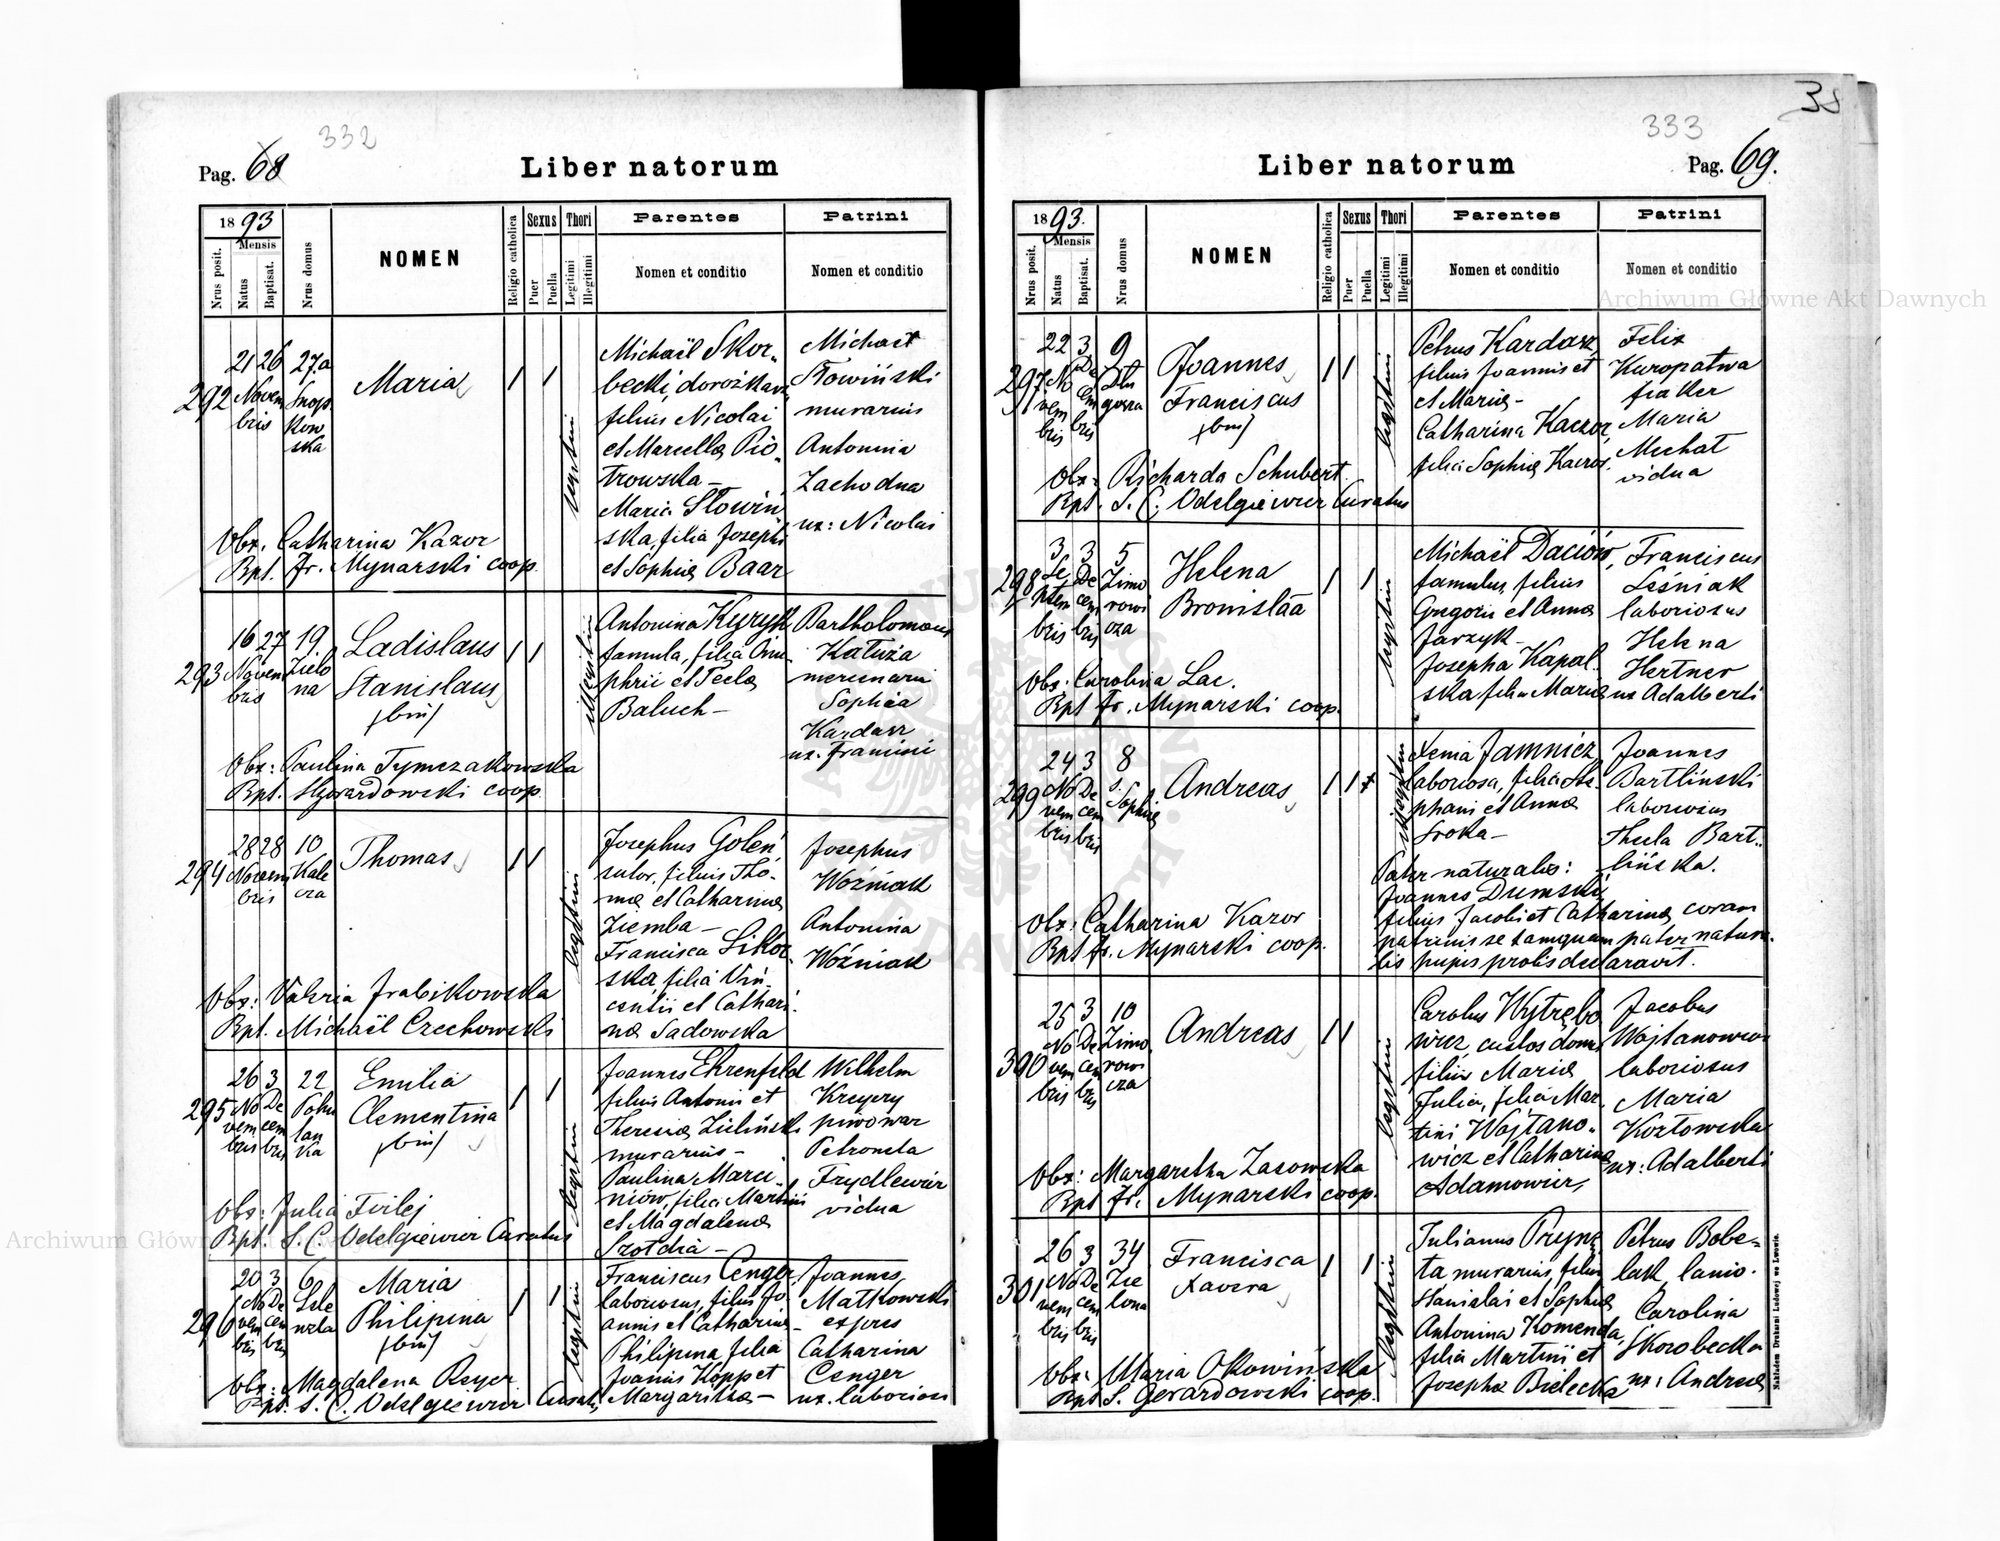 332
Pag. 68
Liber natorum
1893
Mensis
Nrus posit.
Natus
Baptisat.
Nrus domus
NOMEN
Religio catholica
Sexus
Puer
Puella
Thori
Legitimi
Illegitimi
Parentes
Nomen et conditio
Patrini
Nomen et conditio
292
21 26 27a
Novem
bris
Snop
kow
ska
Maria
legitimi
Michaël Skor-
becki, dorożkarz,
filius Nicolai
et Marcella Pio-
trowska –
Maria Słowiń
ska, filia Josephi
et Sophia Baar
Michael
Słowiński
murarius
Antonina
Zachodna
ux: Nicolai
Obx. Catharina Kazor
Bpt. Fr. Mynarski coop.
293
16 27 19.
Novem
bris
Zielo
na
Ladislaus
Stanislaus
(bin)
illegitimi
Antonina Kyryk
famula, filia Onu-
phrii et Tecla
Baluch –
Bartholomaeus
Katuża
mercenarius
Sophia
Kardasz
ux. Francisci
Obx: Paulina Tymczakowska
Bpt. S. Gerardowski coop.
294
28 28 10
Novem
bris
Kale
cza
Thomas
legitimi
Josephus Goleń
sutor, filius Tho-
mæ et Catharina
Ziemba –
Francisca Sikor-
ska filia Vin-
centii et Cathari-
næ Sadowska
Josephus
Woźniak
Antonina
Woźniak
Obx: Valeria Grabikowska
Bpt. Michaël Czechowski
295
26 3 22
No De
vem cem
bris bris
Pohu
lan
ka
Emilia
Clementina
(bin)
legitimi
Joannes Ehrenfeld
filius Antonii et
Theresia Zieliński
murarius –
Paulina Marci-
niów, filia Martini
et Magdalena
Szotdra –
Wilhelm
Kregery
piwowar
Petronela
Frydlewicz
vidua
Obx: Julia Firlej
Bpt. S. C. Odelgiewicz Curatus
296
20 3 6
No De
vem cem
bris bris
Maria
Philipina
(bin)
legitimi
Franciscus Cenger,
laboriosus, filius Jo-
annis et Catharina –
Philipina filia
Joannis Kopp et
Margaritha –
Joannes
Matkowski
expres
Catharina
Cenger
ux. laboriosi
Obx: Magdalena Reyer
Bpt. S. C. Odelgiewicz Curatus
333
Liber natorum
Pag. 69.
1893.
Mensis
Nrus posit.
Natus
Baptisat.
Nrus domus
NOMEN
Religio catholica
Sexus
Puer
Puella
Thori
Legitimi
Illegitimi
Parentes
Nomen et conditio
Patrini
Nomen et conditio
297
22 3 9
No De
vem cem
bris bris
Dłu
gosza
Joannes
Franciscus
(bin)
legitimi
Petrus Kardasz
filius Joannis et
et Maria –
Catharina Kaczor,
filia Sophia Kaczor.
Felix
Kuropatwa
fiaker
Maria
Mechat
vidua
Obx: Richarda Schubert
Bpt. S. C. Odelgiewicz Curatus
298
3 3 5
Se De
ptem cem
bris bris
Zimo
rowi
cza
Helena
Bronisłaa
legitimi
Michaël Daciów,
famulus, filius
Gregorii et Anna
Jarzyk –
Josepha Kapal-
ska filia Maria
Franciscus
Leśniak
laboriosus
Helena
Hertner
ux Adalberti
Obx: Carolina Lac.
Bpt Fr. Mynarski coop.
299
24 3 8
No De
vem cem
bris bris
S.
Sophia
Andreas
illegitimi
Xenia Jamnicz,
laboriosa, filia Ste-
phani et Anna
Sroka –
Joannes
Bartliński
laboriosus
Thecla Bart-
lińska.
Pater naturalis:
Joannes Dumski,
filius Jacobi et Catharina coram
patrinis se tamquam pater natura-
lis hujus prolis declaravit.
Obx: Catharina Kazor
Bpt Fr. Mynarski coop.
300
25 3 10
No De
vem cem
bris bris
Zimo
rowi
cza
Andreas
legitimi
Carolus Wytrębo
wicz, custos domus
filius Maria
Julia, filia Mar-
tini Wojtano-
wicz et Catharina
Adamowicz,
Jacobus
Wojtanowicz
laboriosus
Maria
Kozłowska
ux: Adalberti
Obx: Margaretha Zasowska
Bpt Fr. Mynarski coop.
301
26 3 34
No De
vem cem
bris bris
Zie
lona
Francisca
Xavera
legitimi
Julianus Pryne-
ta murarius, filius
Stanislai et Sophia
Antonina Komenda,
filia Martini et
Josepha Bielecka
Petrus Bobe-
lak, lanio.
Carolina
Skorobecka
ux: Andreæ
Obx: Maria Okowińska
Bpt S. Gerardowski coop.
Nakładem Drukarni Ludowej we Lwowie.
Archiwum Główne Akt Dawnych
Archiwum Główne Akt Dawnych